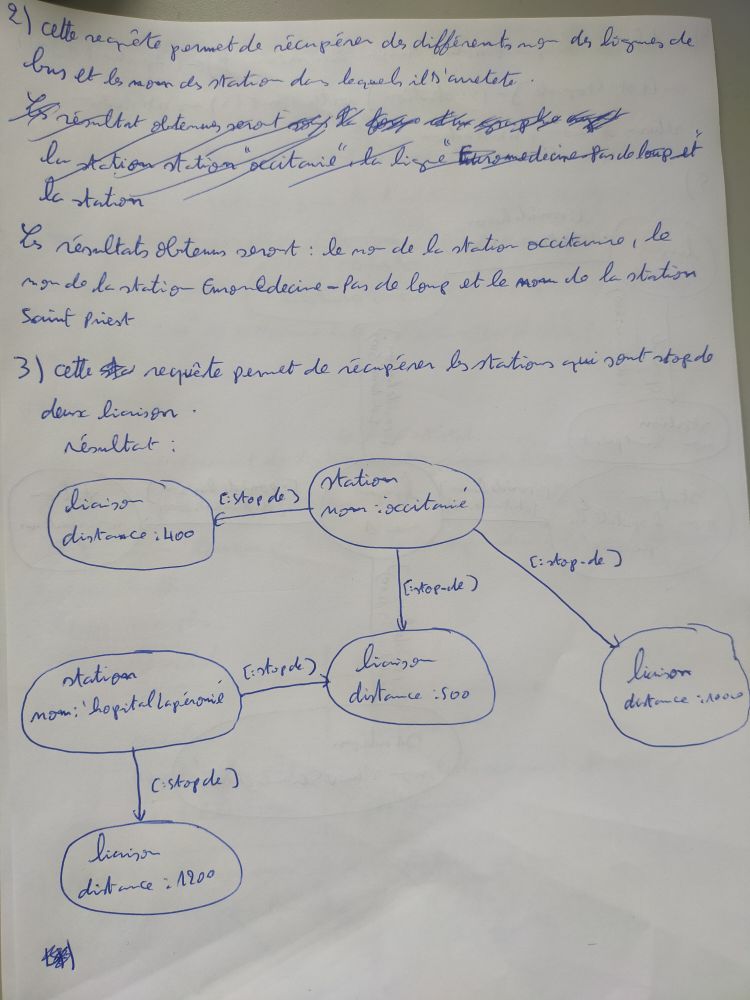 2) cette requête permet de récupérer des différents nom des lignes de
bus et les nom ds station dans lequels ils s'arretete.
Les résultat obtenues seront
la station station "occitanié", la ligne "Euromedecine-Pas de loup et"
la station
Les résultats obtenus seront : le nom de la station occitanire, le
nom de la station Euromédecine-Pas de loup et le nom de la station
Saint Priest
3) cette requête permet de récupérer les stations qui sont stop de
deux liaison.
résultat :
station
nom : 'occitanié
[:stop de]
liaison
distance : 400
[:stop-de]
[:stop-de]
station
nom : 'hopital Lapéronié
[:stop de]
liaison
distance : 500
liaison
distance :
[:stop de]
liaison
distance : 1200